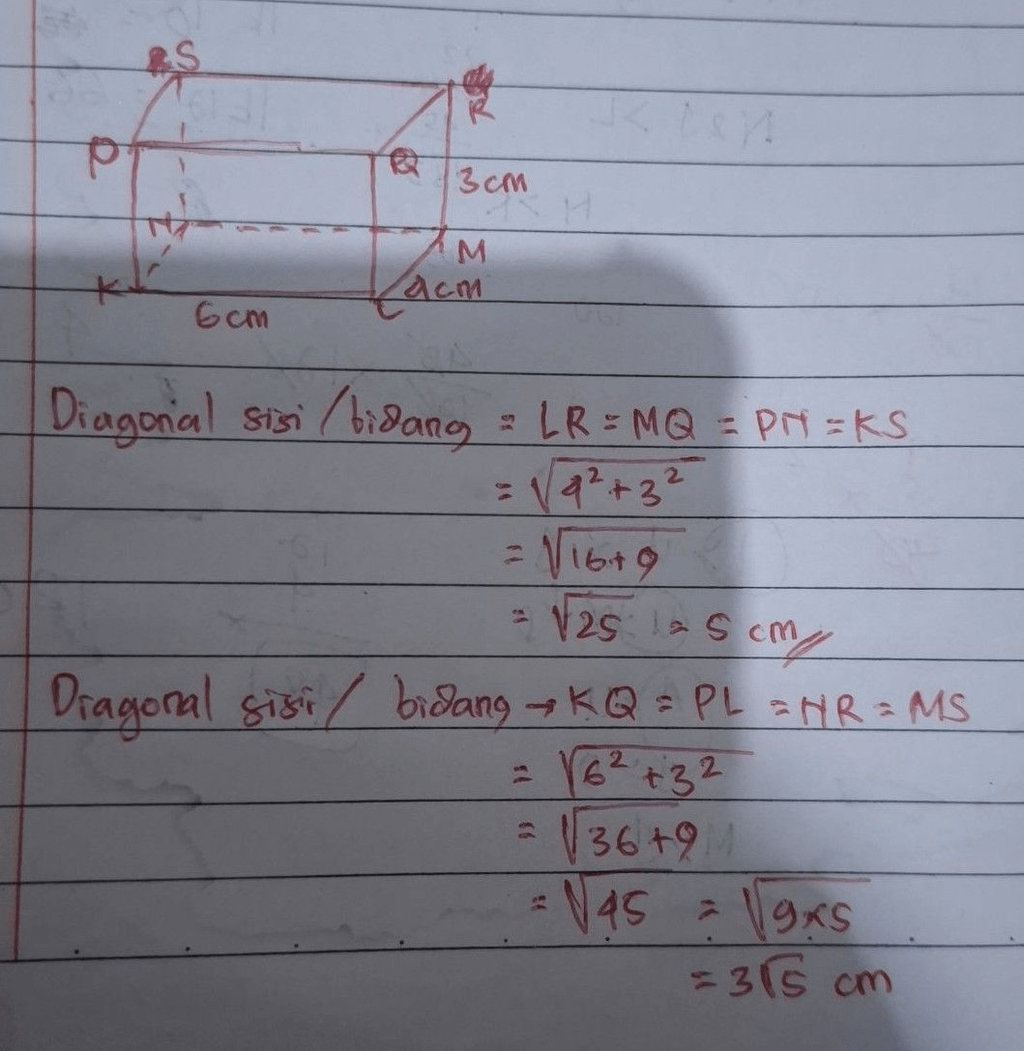 S
R
P
Q
3 cm
N
M
K
4cm
L
6 cm
Diagonal sisi / bidang = LR = MQ = PN = KS
= √4² + 3²
= √16 + 9
= √25 = 5 cm
Diagonal sisi / bidang → KQ = PL = NR = MS
= √6² + 3²
= √36 + 9
= √45 = √9×5
= 3√5 cm